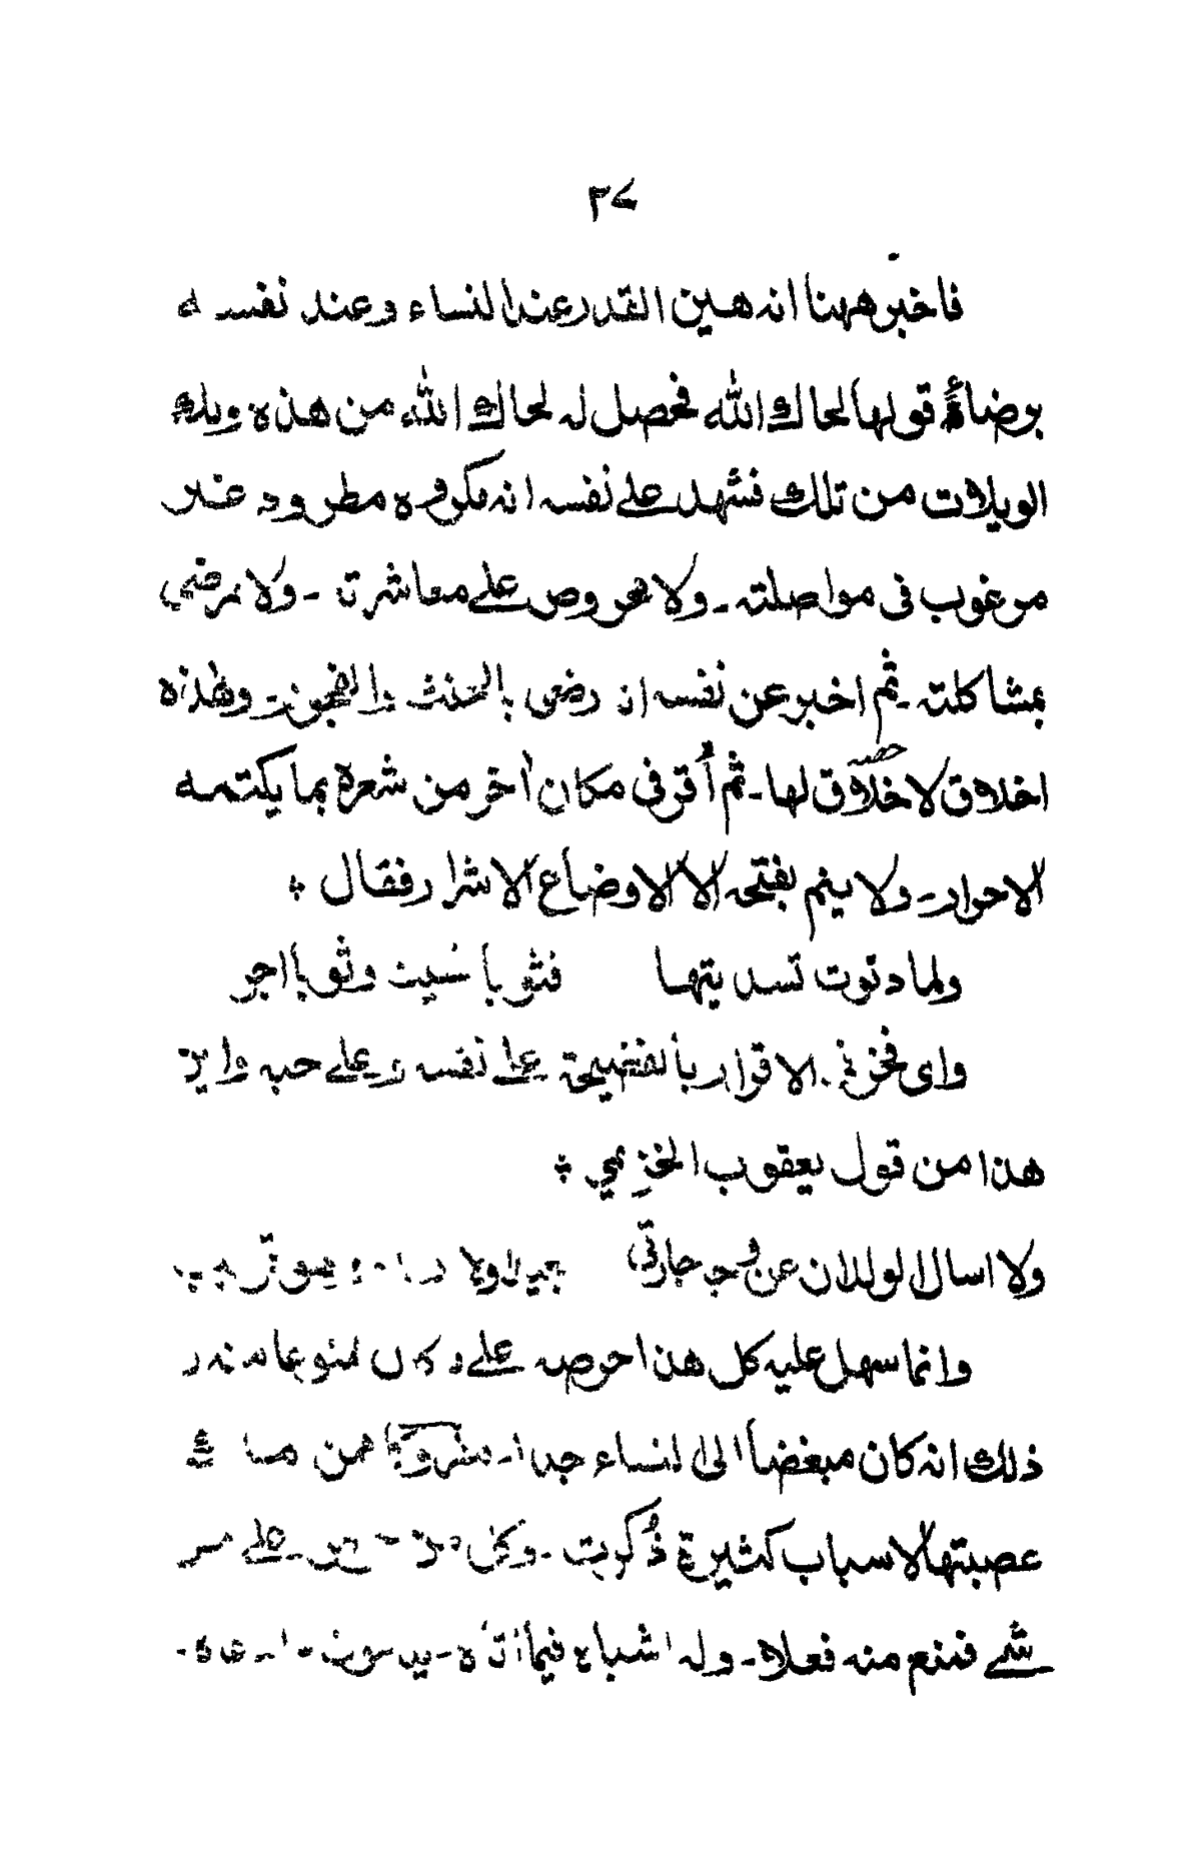 ٣٤
فاخبر ههنا انه هين القدر عند النساء وعند نفسه
برضاه قولها لحاك الله فحصل له لحاك الله من هذه ويلك
الويلات من تلك فشهد على نفسه انه مكروه مطرود غير
مرغوب فى مواصلته ـ ولا محروص على معاشرته ـ ولا مرضي
بمشاكلته ـ ثم اخبر عن نفسه ان رضى بالحنث والفجور ـ وهذه
اخلاق لا خلاق لها ـ ثم أقر فى مكان اٰخر من شعره بما يكتمه
الاحرار ـ ولا ينم بفتحه الا الاوضاع الاشرار فقال ؞
ولما دنوت تسديتها فثوبا نسيت وثوبا اجر
واى فخر فى الاقرار بالفضيحة على نفسه وعلى حبه واين
هذا من قول يعقوب الخزيمي ؞
ولا اسال الولدان عن وجه جارتي
وانما سهل عليه كل هذا حرصه على
ذلك انه كان مبغضا الى النساء جدا ـ مفروكا ممن
عصبتها لاسباب كثيرة ذُكرت ـ على
شے فنزع منه فعلا ـ وله اشباه فيما أتاه ـ